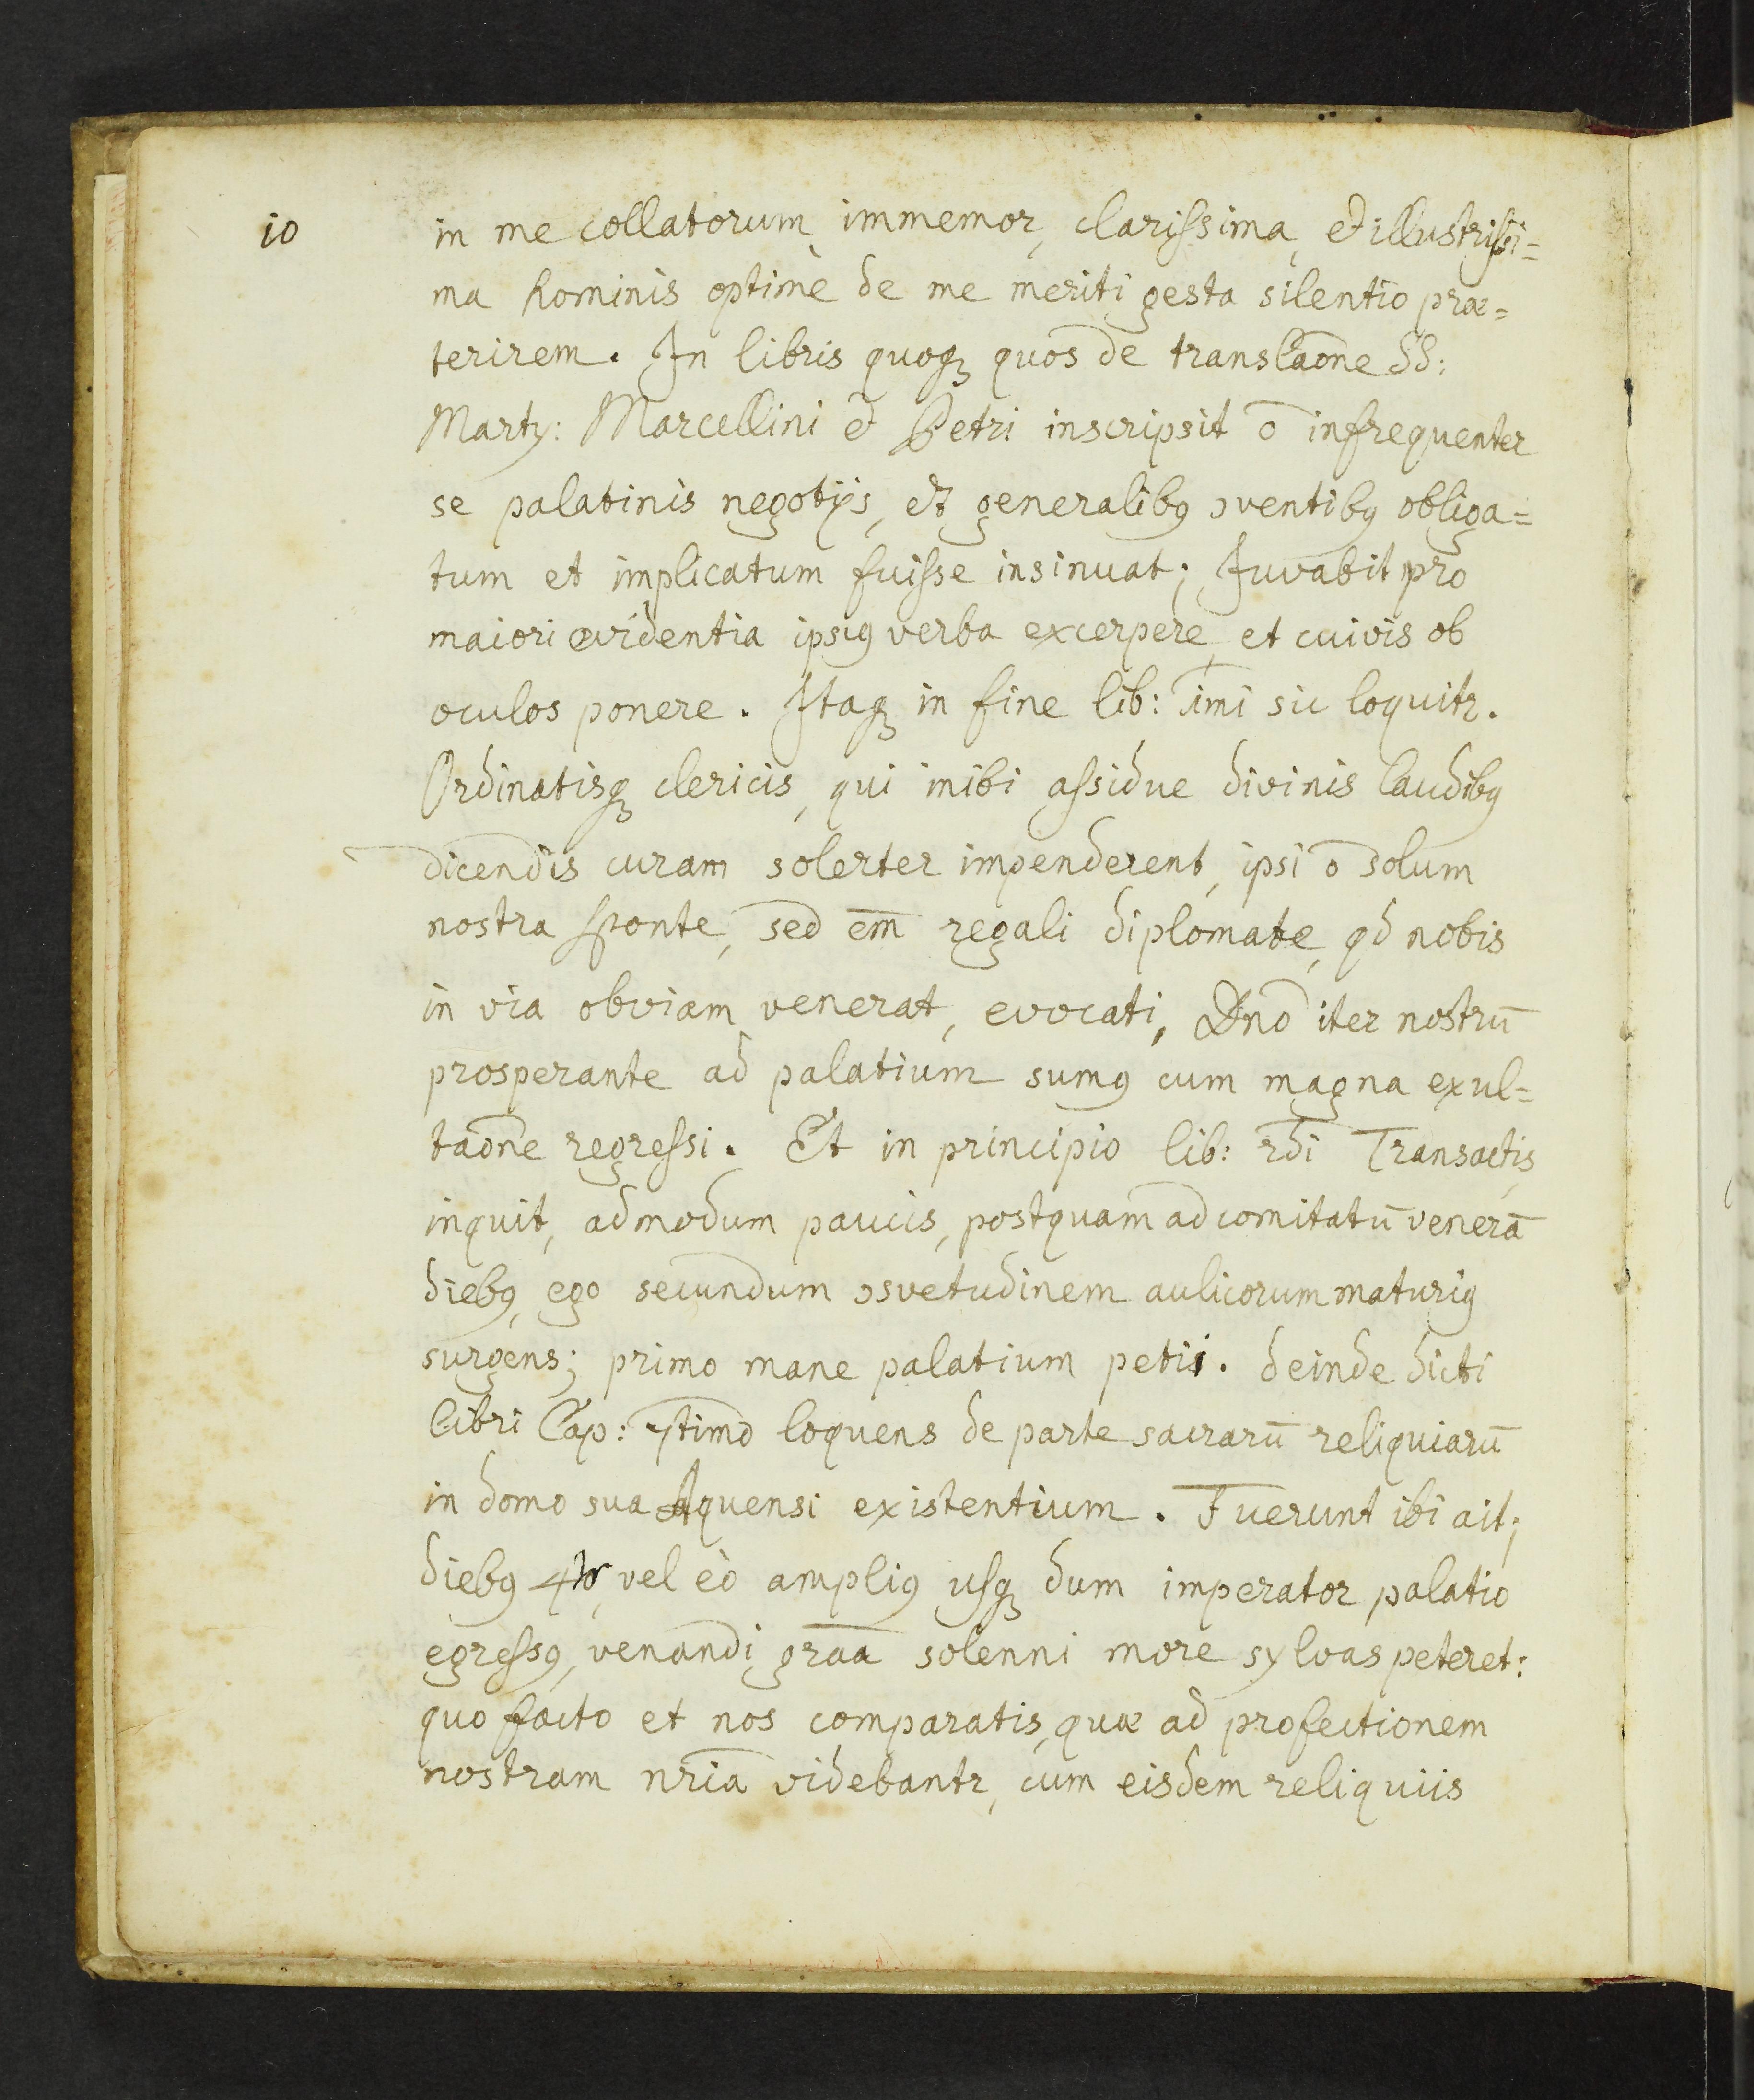 10
in me collatorum immemor, clarissima, et illustrissi=
ma hominis optimè de me meriti gesta silentio præ=
terirem. In libris quoqꝫ quos de translaōne SS:
Marty: Marcellini et Petri inscripsit ō infrequenter
se palatinis negotijs, et generalibꝯ ↄventibꝯ obliga=
tum et implicatum fuisse insinuat; Juvabit pro
maiori evidentia ipsiꝯ verba excerpere, et cuivis ob
oculos ponere. Itaqꝫ in fine lib: 1mi sic loquitr.
Ordinatisqꝫ clericis, qui inibi assidue divinis laudibꝯ
dicendis curam solerter impenderent, ipsi ō solum
nostra sponte, sed em̄ regali diplomate, qd nobis
in via obviam venerat, evocati, Dn̄o iter nostrū
prosperante ad palatium sumꝯ cum magna exul=
taōne regressi. Et in principio lib: 2di Transactis,
inquit, admodum paucis, postquam ad comitatū venerā
diebꝯ, ego secundum ↄsvetudinem aulicorum maturiꝯ
surgens; primo mane palatium petii. deinde dicti
libri Cap: 7timo loquens de parte sacrarū reliquiarū
in domo sua Aquensi existentium. Fuerunt ibi ait;
diebꝯ 4tor, vel eò ampliꝯ usqꝫ dum imperator palatio
egressꝯ, venandi grāa solenni more sylvas peteret:
quo facto et nos comparatis, quæ ad profectionem
nostram nr̄ia videbantr, cum eisdem reliquiis